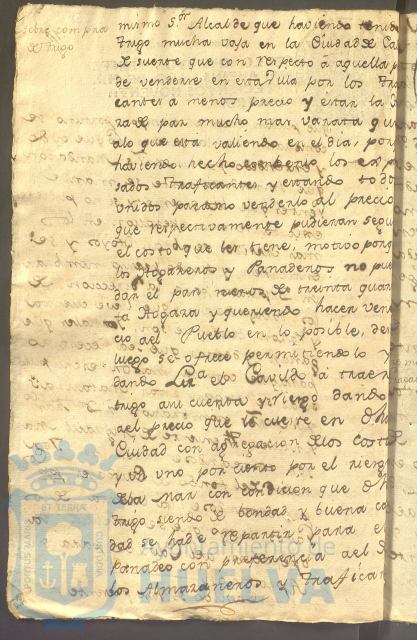 sobre compra
de trigo
mismo S.r Alcalde que haviendo tenido
trigo mucha vaja en la Ciudad de Ca
de suerte que con respecto a aquella p
de venderse en esta Villa por los Traf
cantes a menos precio y estar la
ra de pan mucho mas varata que
a lo que esta valiendo en el dia, por
haviendo hecho los expre
sados Traficantes y estando todos
unidos para no venderlo al precio
que respectivamente pudieran segun
el costo que les tiene, motivo por q
los Atahoneros y Panaderos no pue
dan el pan menos de treinta quar
ta Hogaza y queriendo hacer vene
cio al Pueblo en lo posible, des
luego se ofrece permitiendolo y
dando Liz.a este Cavildo a traer
trigo a su cuenta y riesgo dando
a el precio que le cueste en dha
Ciudad con agregacion de los costos
y de uno por ciento por el riesgo
de la Mar con condicion que dho
trigo siendo de bondad y buena ca
dad se ha de repartir para el
Panadeo con preferencia a el de
los Almazeneros y Trafican
PORTUS MARIS
ET TERRAE
CUSTODIA
Ayuntamiento de
HUELVA